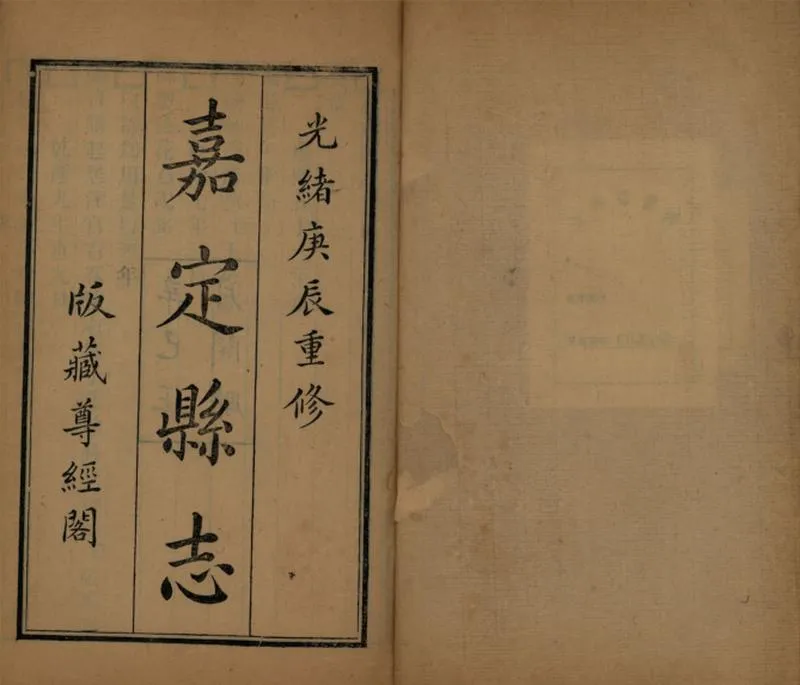 光緒庚辰重修
嘉定縣志
版藏尊經閣